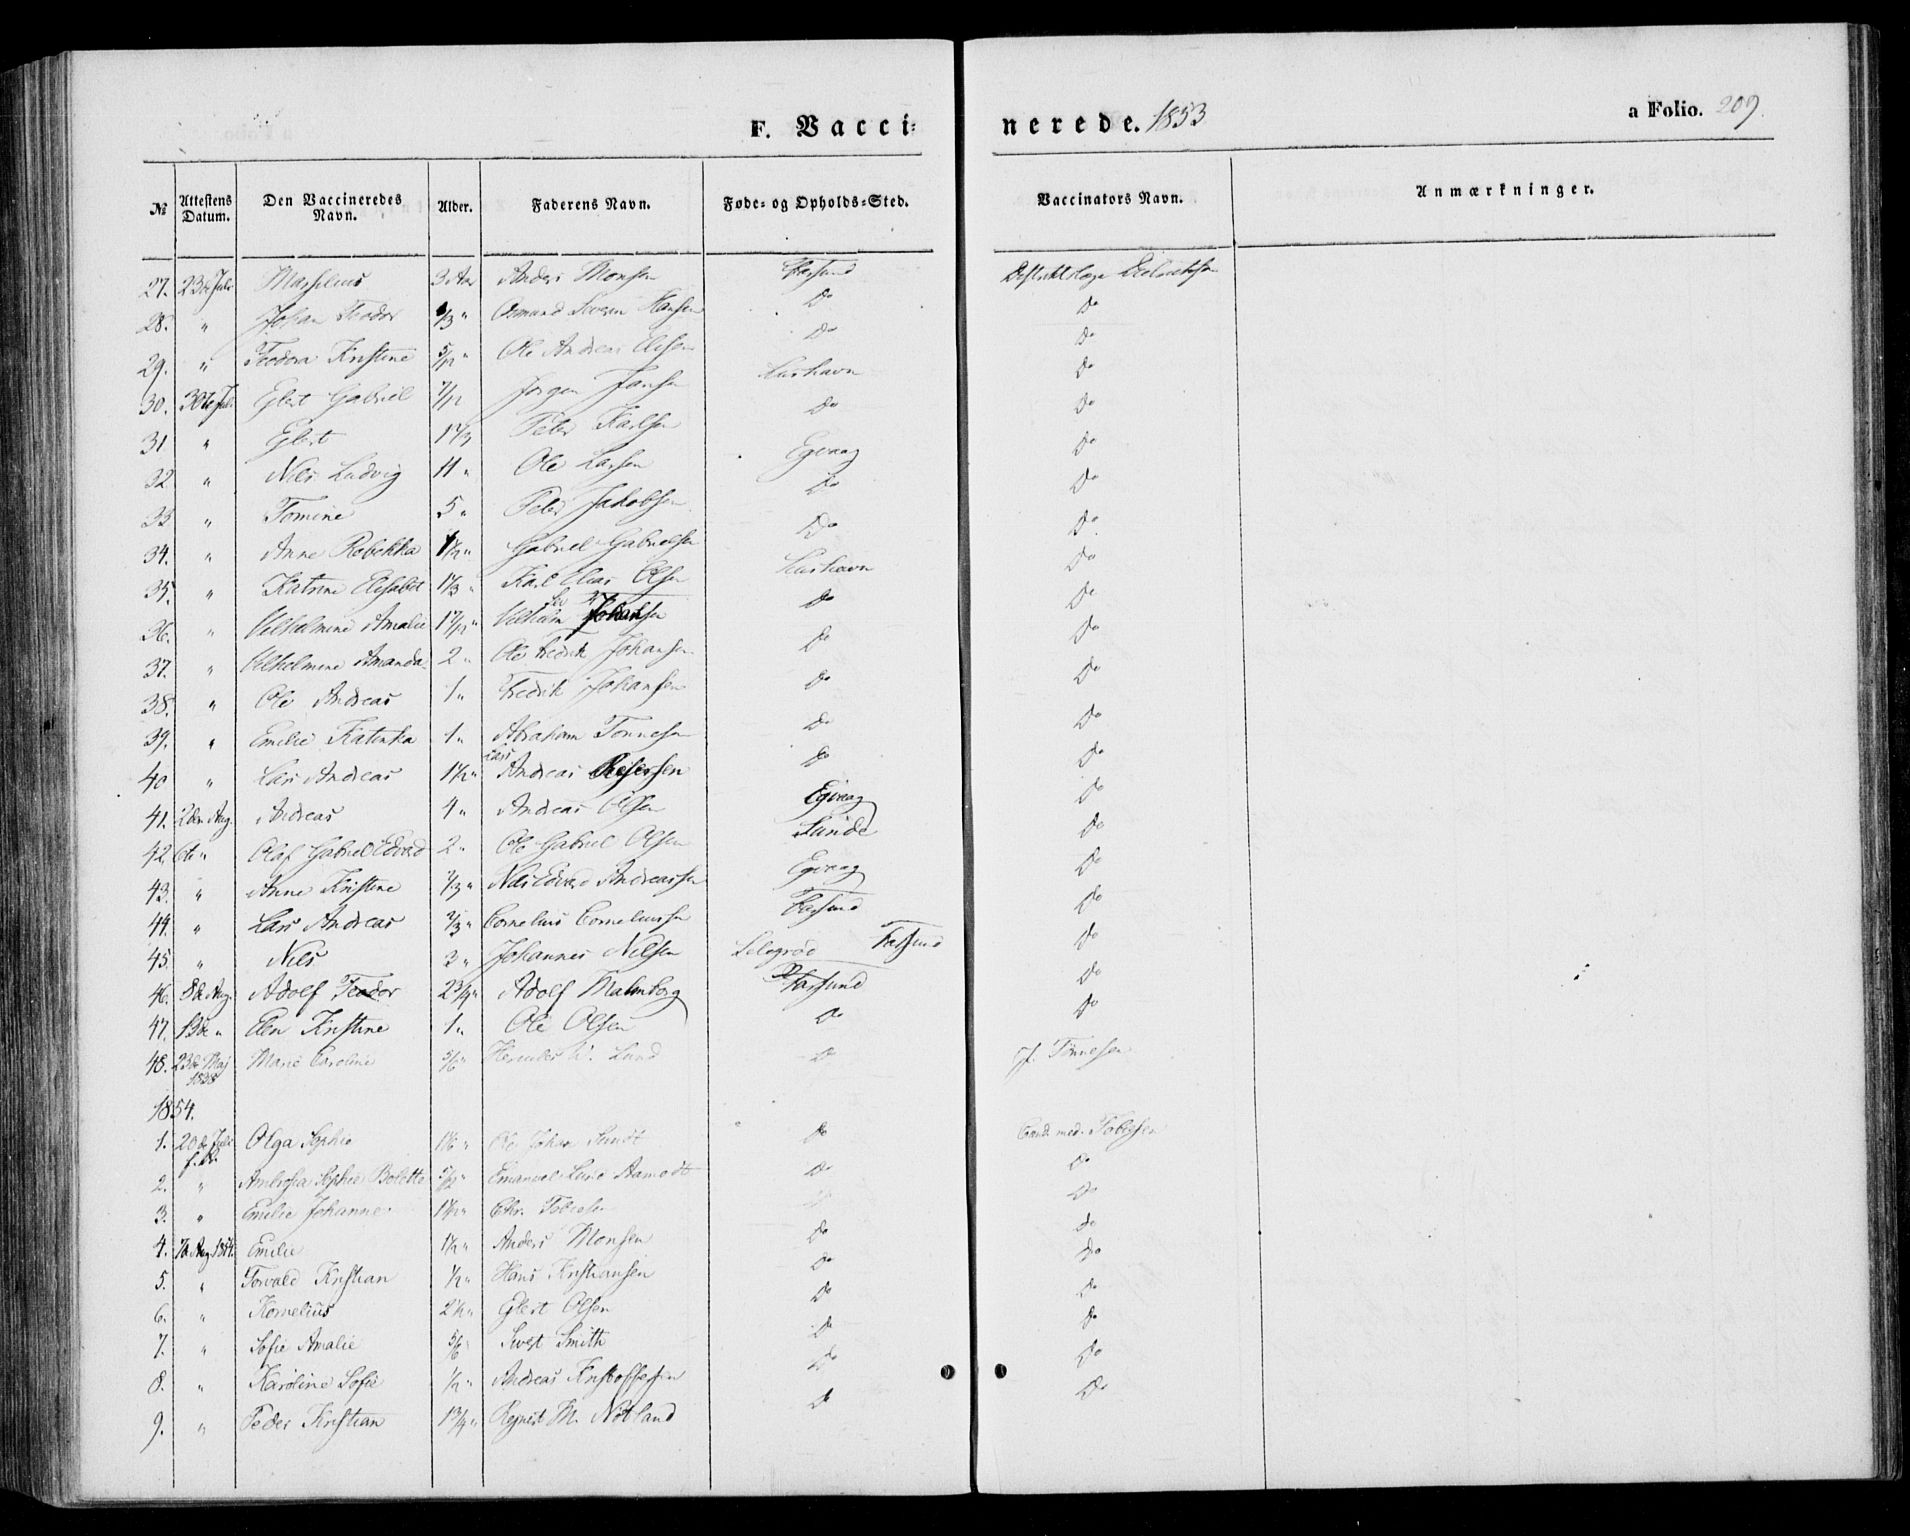 F. Vacci= nerede. 1853 a Folio. 209.
№ Attestens Datum. Den Vaccineredes Navn. Alder. Faderens Navn. Føde= og Opholds=Sted. Vaccinators Navn. Anmærkninger.
27. 23de Juli 3 Aar Anders Monsen Farsund
28. " Johan Teodor Hansen Do Do
29. " Teodora Kristine 5/12 " Ole Andreas Olsen Do Do
30. 30te Juli Glert Gabriel 7/12 Jørgen Jansen Lushavn Do
31 " Glert Peder Karlsen Do Do
32 " Nils Ludvig 11 " Ole Larsen Egvaag Do
33 " Tomine 5 " Peder Jakobsen Do Do
34. " Anne Rebekka Gabriel Gabrielsen Do Do
35. " Katrine Elisabet 1 1/3 " Karl Elias Olsen Lushavn Do
36. " Vilhelmine Amalie Vilhelm Johansen Do Do
37. " Vilhelmine Amanda 2 " Ole Fredrik Johansen Do Do
38. " Ole Andreas 1 " Fredrik Johansen Do Do
39. " Emilie Katinka 1 " Abraham Tønnesen Do Do
40 " Lars Andreas 1 1/2 " Lars Andreas Do Do
41. 2den Aug. Andreas 4 " Andreas Olsen Egvaag Do
42. 6te " Olaf Gabriel Edvard 2 " Ole Gabriel Olsen Sunde Do
43. " Anne Kristine 2/3 " Nils Edvard Andreassen Egvaag Do
44. " Lars Andreas 2/3 " Cornelius Corneliussen Farsund Do
45. " Nils 3 " Johannes Nilsen Farsund Do
46. 8de Aug. Adolf Teodor 2 3/4 " Adolf Malmborg Farsund Do
47. 13de " Elen Kristine 1 " Ole Olsen Do Do
48. 23de Maj 1838 Marie Caroline 5/6 " Lund Do J. Tønnesen
1854.
1. 20de Juli Olga Sophie 1 1/6 " Ole Johan Sundt Do Cand. med. Tobiesen
2. " Ambrosia Sophie Bolette 5/12 " Emanuel Lund Aamodt Do Do
3. " Emilie Johanne Chr. Tobiesen Do Do
4. 7de Aug 1854. Emilie 1 1/2 " Anders Monsen Do Do
5. " Torvald Kristian 1/2 " Hans Kristiansen Do Do
6. " Kornelius 2 1/2 " Glert Olsen Do Do
7. " Sofie Amalie 5/6 " Smith Do Do
8. " Karoline Sofie 1/2 " Andreas Kristoffersen Do Do
9. " Peder Kristian 1 3/4 " Rejnert M. Nøtland Do Do